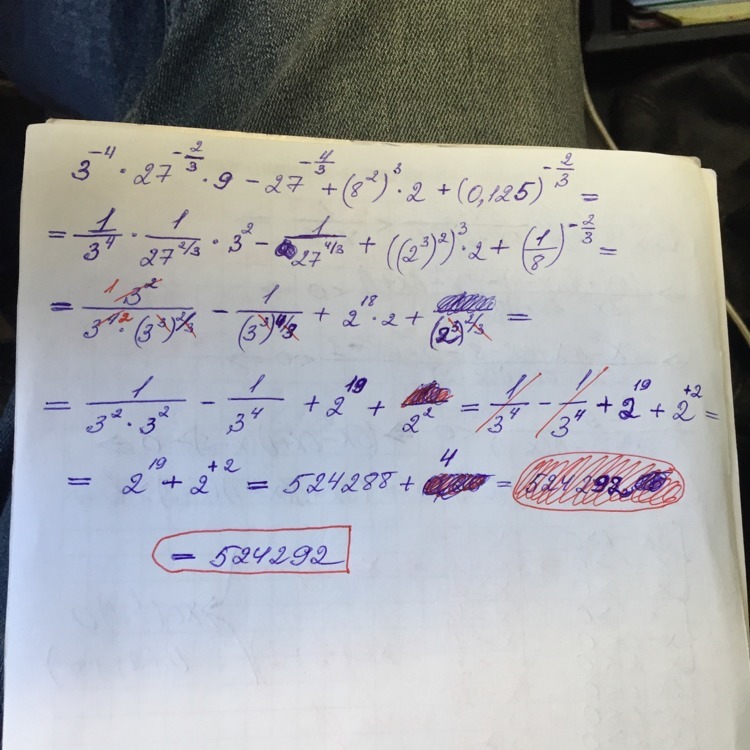 3^{-4} · 27^{-2/3} · 9 - 27^{-4/3} + (8^2)^3 · 2 + (0,125)^{-2/3} =
= 1/3^4 · 1/27^{2/3} · 3^2 - 1/27^{4/3} + ((2^3)^2)^3 · 2 + (1/8)^{-2/3} =
= 1 3^2/(3^{4 2} · (3^3)^{2/3}) - 1/(3^3)^{4/3} + 2^{18} · 2 + (2^3)^{2/3} =
= 1/(3^2 · 3^2) - 1/3^4 + 2^{19} + 2^2 = 1/3^4 - 1/3^4 + 2^{19} + 2^{+2} =
= 2^{19} + 2^{+2} = 524288 + 4 = 524292
= 524292